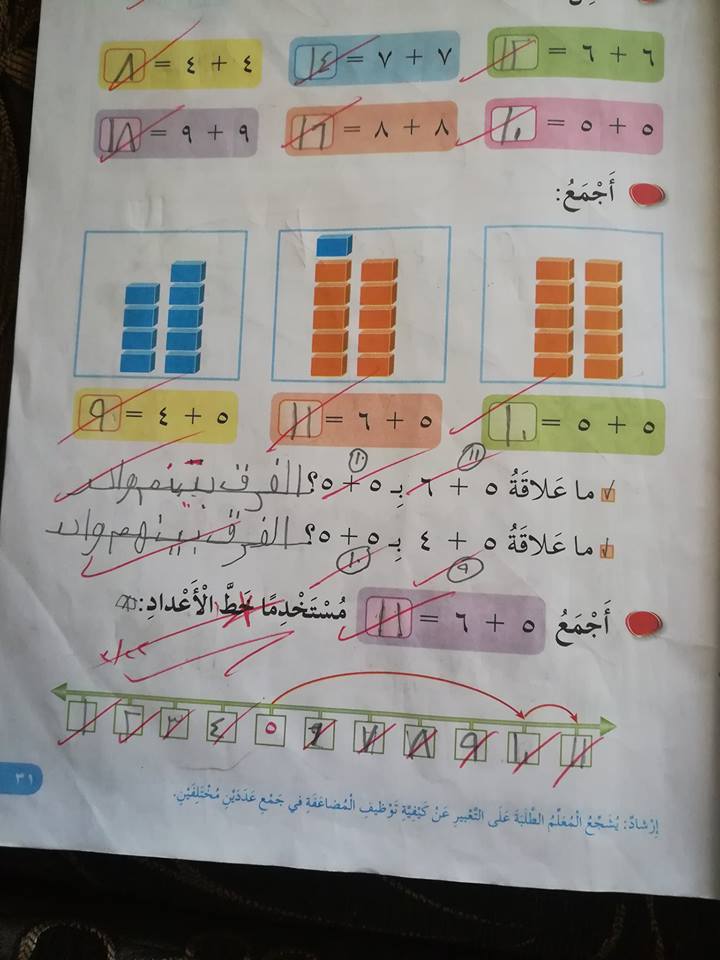 ٦ + ٦ = ١٢
٧ + ٧ = ١٤
٤ + ٤ = ٨
٥ + ٥ = ١٠
٨ + ٨ = ١٦
٩ + ٩ = ١٨
أَجْمَعُ:
٥ + ٥ = ١٠
٥ + ٦ = ١١
٥ + ٤ = ٩
١١ ١٠
ما عَلاقَةُ ٥ + ٦ بِـ ٥ + ٥؟ الفرق بينهم واحد
ما عَلاقَةُ ٥ + ٤ بِـ ٥ + ٥؟ الفرق بينهم واحد
٩ ١٠
أَجْمَعُ ٥ + ٦ = ١١ مُسْتَخْدِمًا خَطَّ الْأَعْدادِ:
١ ٢ ٣ ٤ ٥ ٦ ٧ ٨ ٩ ١٠ ١١
إِرْشادٌ: يُشَجِّعُ الْمُعَلِّمُ الطَّلَبَةَ عَلَى التَّعْبيرِ عَنْ كَيْفِيَّةِ تَوْظيفِ الْمُضاعَفَةِ في جَمْعِ عَدَدَيْنِ مُخْتَلِفَيْنِ.
٣١